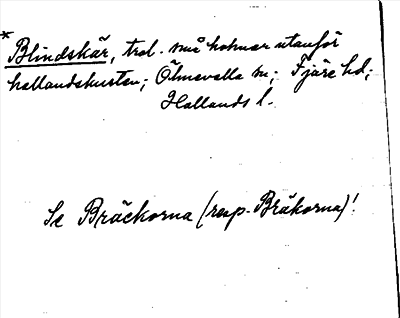 * Blindskär, trol. små holmar utanför
hallandskusten; Ölmevalla sn; Fjäre hd;
Hallands l.
Se Bräckorna (resp. Bräkorna)!